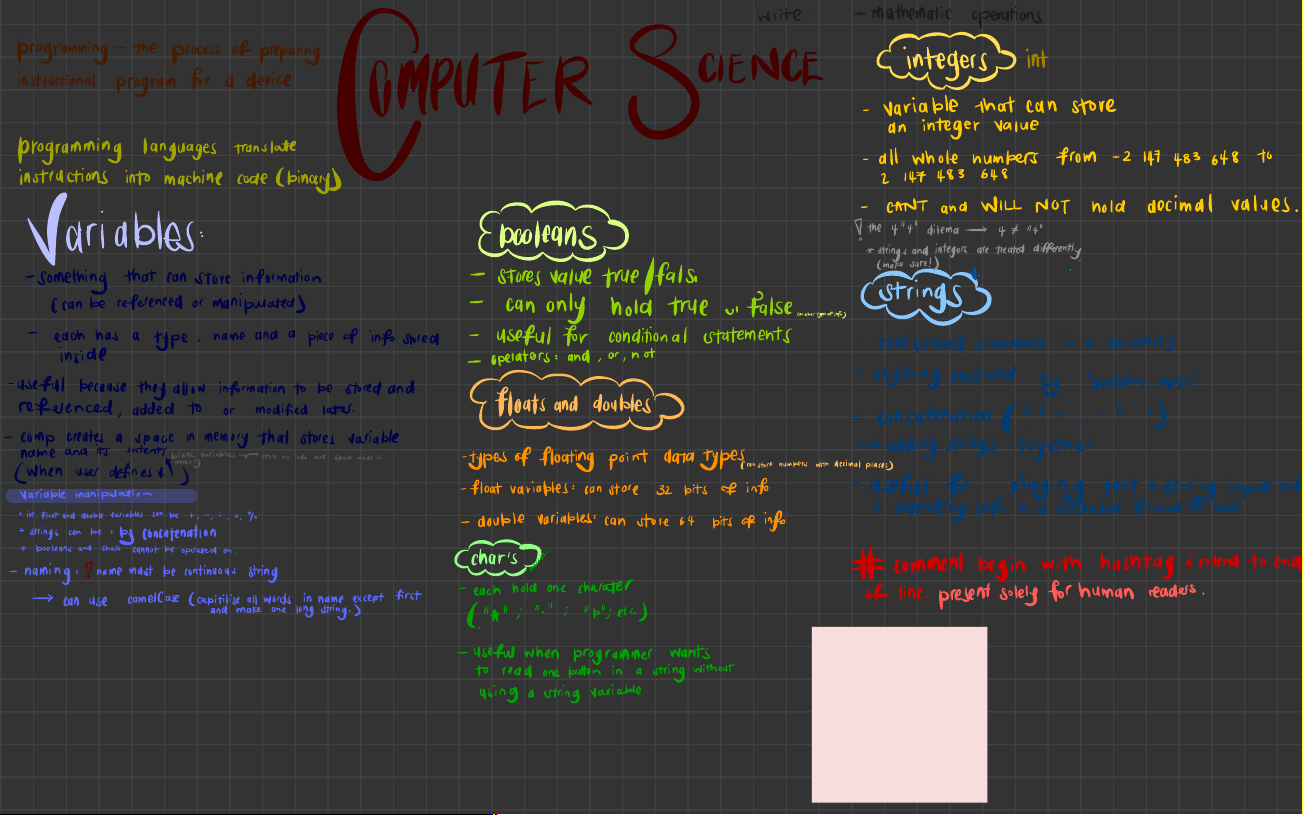 write
COMPUTER SCIENCE
programming - the process of preparing
instructional program for a device
programming languages translate
instructions into machine code (binary)
Variables:
- something that can store information
(can be referenced or manipulated)
- each has a type, name and a piece of info stored
inside
- useful because they allow information to be stored and
referenced, added to or modified later.
- comp creates a space in memory that stores variable
name and its
(when user defines it)
blank variables
Variable manipulation
* int, float and double variables can be +, -, ÷, x, %
* strings can be + by concatenation
* booleans and chars cannot be operated on.
- naming: ! name must be continuous string
→ can use camelCase (capitilise all words in name except first
and make one long string.)
booleans
- stores value true/fals
- can only hold true or false
- useful for conditional statements
- operators: and, or, not
floats and doubles
- types of floating point data types (can store numbers with decimal places)
- float variables: can store 32 bits of info
- double variables: can store 64 bits of info
char's
- each hold one charater
("A" ; "." ; "p"; etc)
- useful when programmer wants
to read one button in a string without
using a string variable
- mathematic operations
integers int
- variable that can store
an integer value
- all whole numbers from -2 147 483 648 to
2 147 483 648
- CANT and WILL NOT hold decimal values.
! the 4 "4" dilema → 4 ≠ "4"
* strings and integers are treated differently
(make sure!)
strings
- anything enclosed by
- concatenation
→ adding strings together
- useful for
# comment begin with hashtag & extend to end
of line. present solely for human readers.